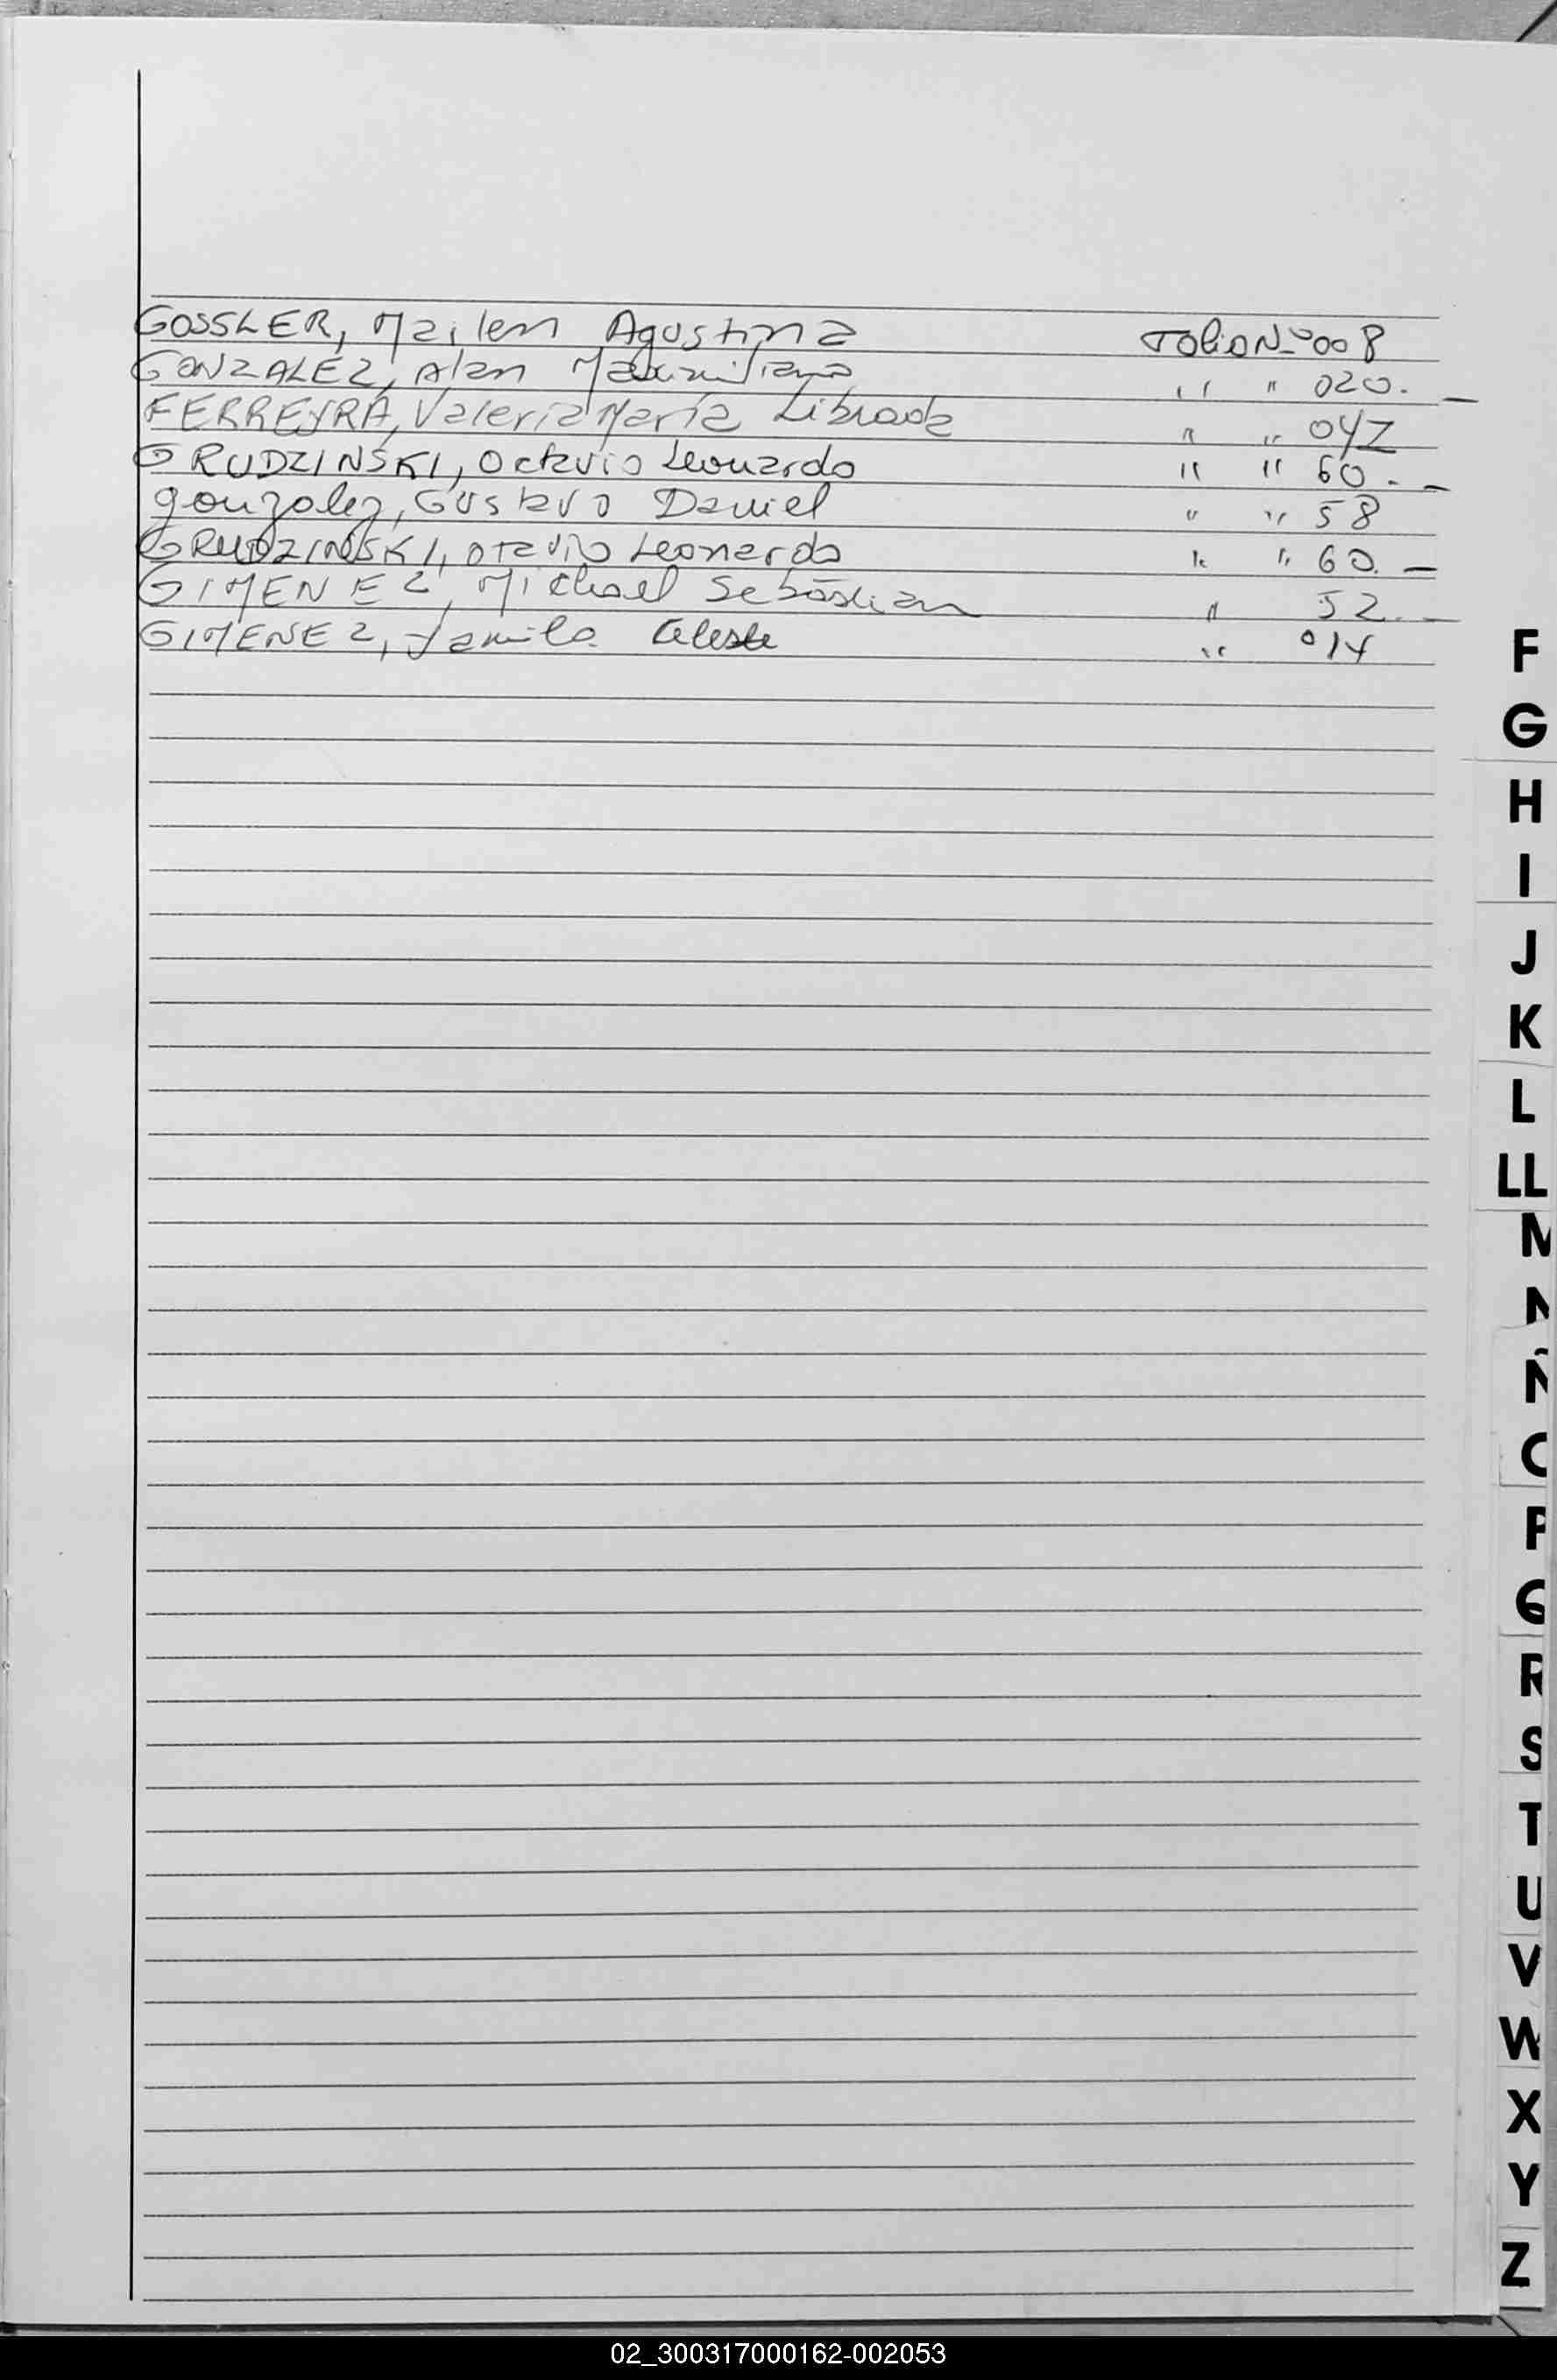 GOSSLER, Mailem Agustina Folio Nº 008
GONZALEZ, Alan Maximiliano " " 020.
FERREYRA, Valeria María Librada " " 042
GRUDZINSKI, Octavio Leonardo " " 60.-
gonzalez, Gustavo Daniel " " 58
GRUDZINSKI, Otavio Leonardo " " 60.-
GIMENEZ, Michael Sebastian " 52.-
GIMENEZ, Jamila Celeste " 014
F
G
H
I
J
K
L
LL
M
N
Ñ
O
P
Q
R
S
T
U
V
W
X
Y
Z
02_300317000162-002053